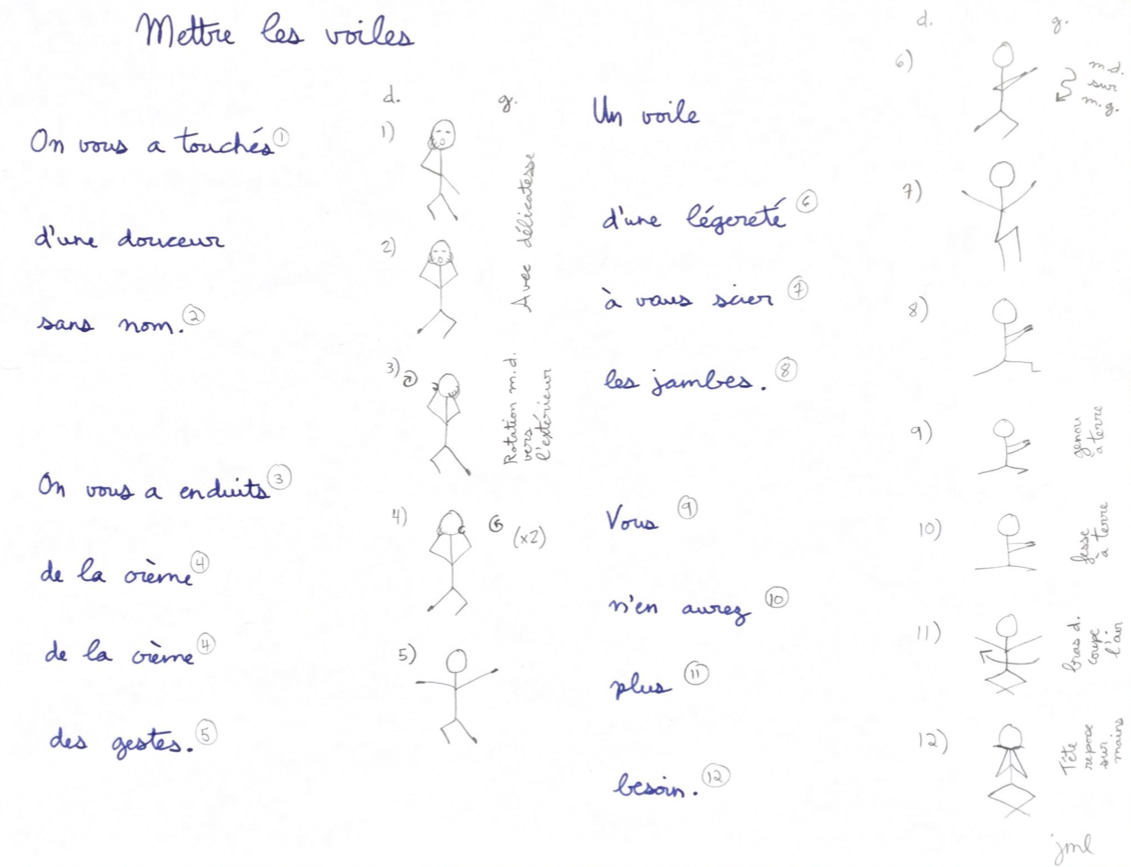 Mettre les voiles
On vous a touchés ①
d'une douceur
sans nom. ②
On vous a enduits ③
de la crème ④
de la crème ④
des gestes. ⑤
d. g.
1)
2)
Avec délicatesse
3)
Rotation m.d.
vers
l'extérieur
4) (x2)
5)
Un voile
d'une légereté ⑥
à vous scier ⑦
les jambes. ⑧
Vous ⑨
n'en aurez ⑩
plus ⑪
besoin. ⑫
d. g.
6) m.d.
sur
m.g.
7)
8)
9) genou
à terre
10) fesse
à terre
11) bras d.
coupe
l'air
12) Tête
repose
sur
mains
jml